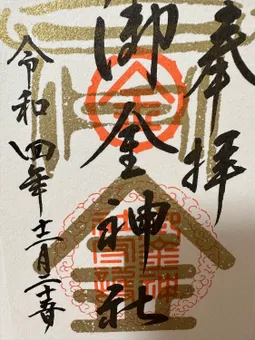 奉拝
御金神社
令和四年十二月二十五日